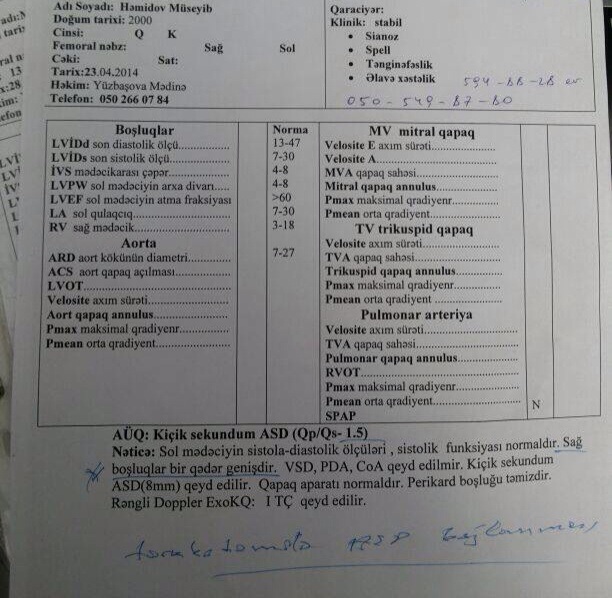 Adı Soyadı: Həmidov Müseyib
Doğum tarixi: 2000
Cinsi: Q K
Femoral nəbz: Sağ Sol
Çəki: Sat:
Tarix:23.04.2014
Həkim: Yüzbaşova Mədinə
Telefon: 050 266 07 84
Qaraciyər:
Klinik: stabil
• Sianoz
• Spell
• Tənginəfəslik
• Əlavə xəstəlik
050-549-87-80
Boşluqlar Norma
LVİDd son diastolik ölçü 13-47
LVİDs son sistolik ölçü 7-30
İVS mədəcikarası çəpər 4-8
LVPW sol mədəciyin arxa divarı 4-8
LVEF sol mədəciyin atma fraksiyası >60
LA sol qulaqcıq 7-30
RV sağ mədəcik 3-18
Aorta
ARD aort kökünün diametri 7-27
ACS aort qapaq açılması
LVOT
Velosite axım sürəti
Aort qapaq annulus
Pmax maksimal qradiyenr
Pmean orta qradiyent
MV mitral qapaq
Velosite E axım sürəti
Velosite A
MVA qapaq sahəsi
Mitral qapaq annulus
Pmax maksimal qradiyenr
Pmean orta qradiyent
TV trikuspid qapaq
Velosite axım sürəti
TVA qapaq sahəsi
Trikuspid qapaq annulus
Pmax maksimal qradiyenr
Pmean orta qradiyent
Pulmonar arteriya
Velosite axım sürəti
TVA qapaq sahəsi
Pulmonar qapaq annulus
RVOT
Pmax maksimal qradiyenr
Pmean orta qradiyent N
SPAP
AÜQ: Kiçik sekundum ASD (Qp/Qs- 1.5)
Nəticə: Sol mədəciyin sistola-diastolik ölçüləri , sistolik funksiyası normaldır. Sağ
boşluqlar bir qədər genişdir. VSD, PDA, CoA qeyd edilmir. Kiçik sekundum
ASD(8mm) qeyd edilir. Qapaq aparatı normaldır. Perikard boşluğu təmizdir.
Rəngli Doppler ExoKQ: I TÇ qeyd edilir.
bağlanması